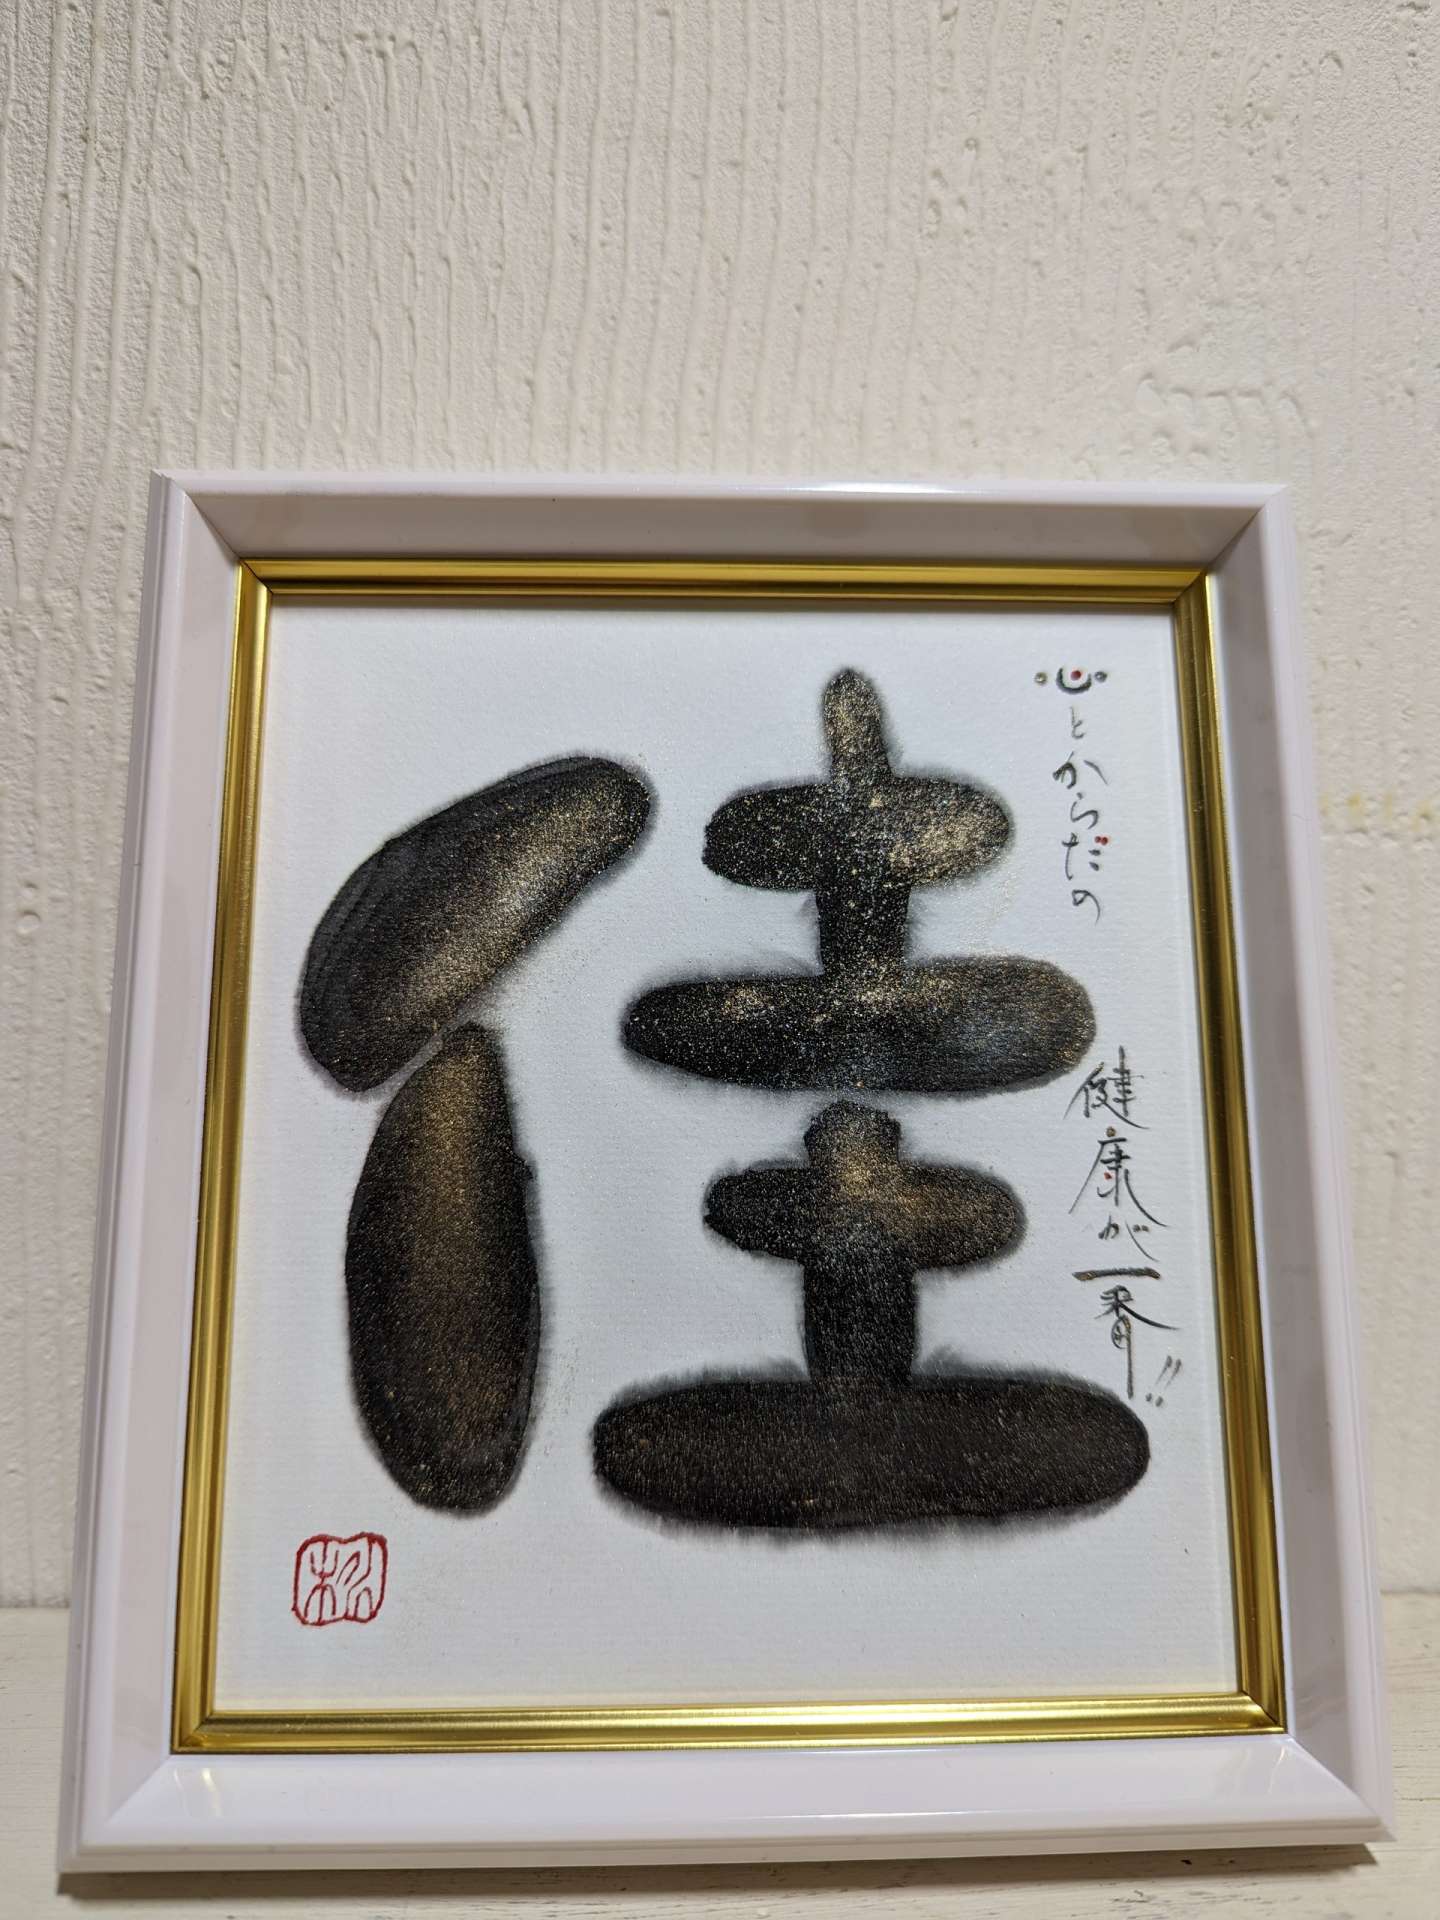 心とからだの
健康が一番!!
佳